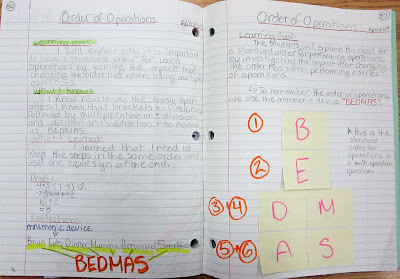 Order of Operations
Learning Goal:
I will explain why it is important
to have a standard order for using
operations by
changing the order has when using multiple
What I Know:
I know how to use the basic oper-
ations. I know that brackets
followed by multiplication and division
and addition and subtraction, also known
is BEDMAS.
What I Learned:
I learned that I need to
keep the steps in the same order and
use one equal sign at the end.
Proof:
Reflection:
mnemonic device
BEDMAS
Order of Operations
Learning Goal:
The students will explain the need for
a standard order for performing operations,
by investigating the impact that changing
the order has when performing a series
of operations.
To remember the order of operations,
we use the mnemonic device "BEDMAS"
1 B
2 E
3+4 D M
5+6 A S
this is the
standard
order for
operations in
a multi operation
question